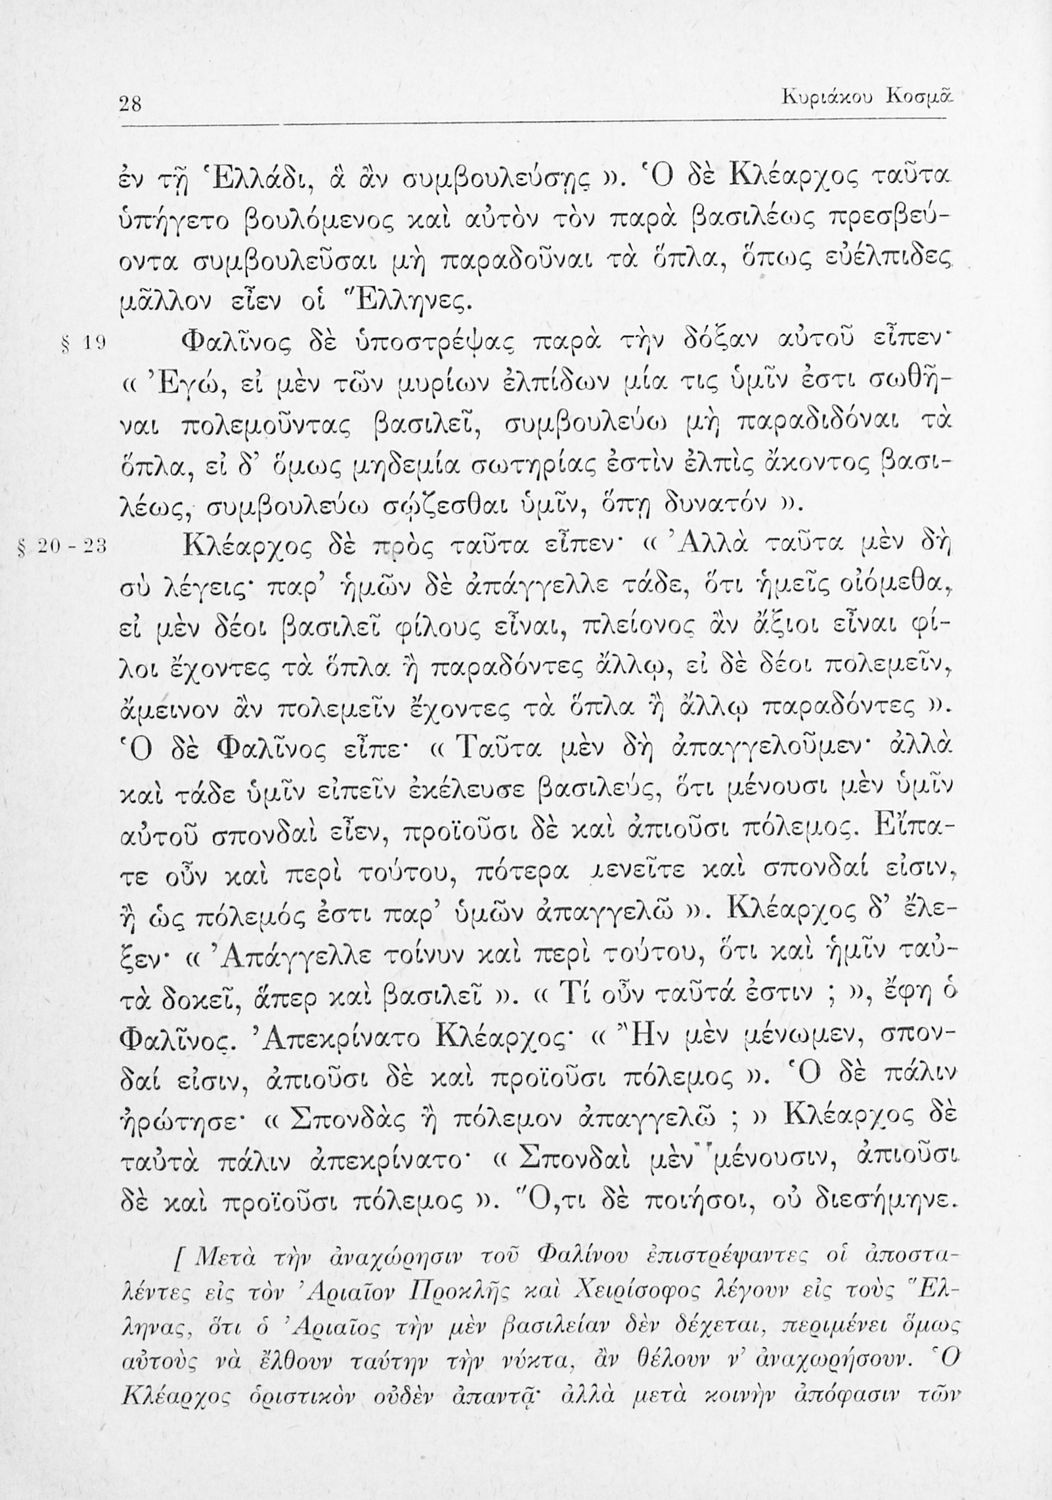 28
Κυριάκου Κοσμᾶ
ἐν τῇ Ἑλλάδι, ἃ ἂν συμβουλεύσῃς ». Ὁ δὲ Κλέαρχος ταῦτα
ὑπήγετο βουλόμενος καὶ αὐτὸν τὸν παρὰ βασιλέως πρεσβεύ-
οντα συμβουλεῦσαι μὴ παραδοῦναι τὰ ὅπλα, ὅπως εὐέλπιδες
μᾶλλον εἶεν οἱ Ἕλληνες.
§ 19 Φαλῖνος δὲ ὑποστρέψας παρὰ τὴν δόξαν αὐτοῦ εἶπεν·
« Ἐγώ, εἰ μὲν τῶν μυρίων ἐλπίδων μία τις ὑμῖν ἐστι σωθῆ-
ναι πολεμοῦντας βασιλεῖ, συμβουλεύω μὴ παραδιδόναι τὰ
ὅπλα, εἰ δ’ ὅμως μηδεμία σωτηρίας ἐστὶν ἐλπὶς ἄκοντος βασι-
λέως, συμβουλεύω σῴζεσθαι ὑμῖν, ὅπῃ δυνατόν ».
§ 20 - 23 Κλέαρχος δὲ πρὸς ταῦτα εἶπεν· « Ἀλλὰ ταῦτα μὲν δὴ
σὺ λέγεις· παρ’ ἡμῶν δὲ ἀπάγγελλε τάδε, ὅτι ἡμεῖς οἰόμεθα,
εἰ μὲν δέοι βασιλεῖ φίλους εἶναι, πλείονος ἂν ἄξιοι εἶναι φί-
λοι ἔχοντες τὰ ὅπλα ἢ παραδόντες ἄλλῳ, εἰ δὲ δέοι πολεμεῖν,
ἄμεινον ἂν πολεμεῖν ἔχοντες τὰ ὅπλα ἢ ἄλλῳ παραδόντες ».
Ὁ δὲ Φαλῖνος εἶπε· « Ταῦτα μὲν δὴ ἀπαγγελοῦμεν· ἀλλὰ
καὶ τάδε ὑμῖν εἰπεῖν ἐκέλευσε βασιλεύς, ὅτι μένουσι μὲν ὑμῖν
αὐτοῦ σπονδαὶ εἶεν, προϊοῦσι δὲ καὶ ἀπιοῦσι πόλεμος. Εἴπα-
τε οὖν καὶ περὶ τούτου, πότερα μενεῖτε καὶ σπονδαί εἰσιν,
ἢ ὡς πόλεμός ἐστι παρ’ ὑμῶν ἀπαγγελῶ ». Κλέαρχος δ’ ἔλε-
ξεν· « Ἀπάγγελλε τοίνυν καὶ περὶ τούτου, ὅτι καὶ ἡμῖν ταὐ-
τὰ δοκεῖ, ἅπερ καὶ βασιλεῖ ». « Τί οὖν ταῦτά ἐστιν ; », ἔφη ὁ
Φαλῖνος. Ἀπεκρίνατο Κλέαρχος· « Ἢν μὲν μένωμεν, σπον-
δαί εἰσιν, ἀπιοῦσι δὲ καὶ προϊοῦσι πόλεμος ». Ὁ δὲ πάλιν
ἠρώτησε· « Σπονδὰς ἢ πόλεμον ἀπαγγελῶ ; » Κλέαρχος δὲ
ταὐτὰ πάλιν ἀπεκρίνατο· « Σπονδαὶ μὲν μένουσιν, ἀπιοῦσι
δὲ καὶ προϊοῦσι πόλεμος ». Ὅ,τι δὲ ποιήσοι, οὐ διεσήμηνε.
[ Μετὰ τὴν ἀναχώρησιν τοῦ Φαλίνου ἐπιστρέψαντες οἱ ἀποστα-
λέντες εἰς τὸν Ἀριαῖον Προκλῆς καὶ Χειρίσοφος λέγουν εἰς τοὺς Ἕλ-
ληνας, ὅτι ὁ Ἀριαῖος τὴν μὲν βασιλείαν δὲν δέχεται, περιμένει ὅμως
αὐτοὺς νὰ ἔλθουν ταύτην τὴν νύκτα, ἂν θέλουν ν’ ἀναχωρήσουν. Ὁ
Κλέαρχος ὁριστικὸν οὐδὲν ἀπαντᾷ· ἀλλὰ μετὰ κοινὴν ἀπόφασιν τῶν